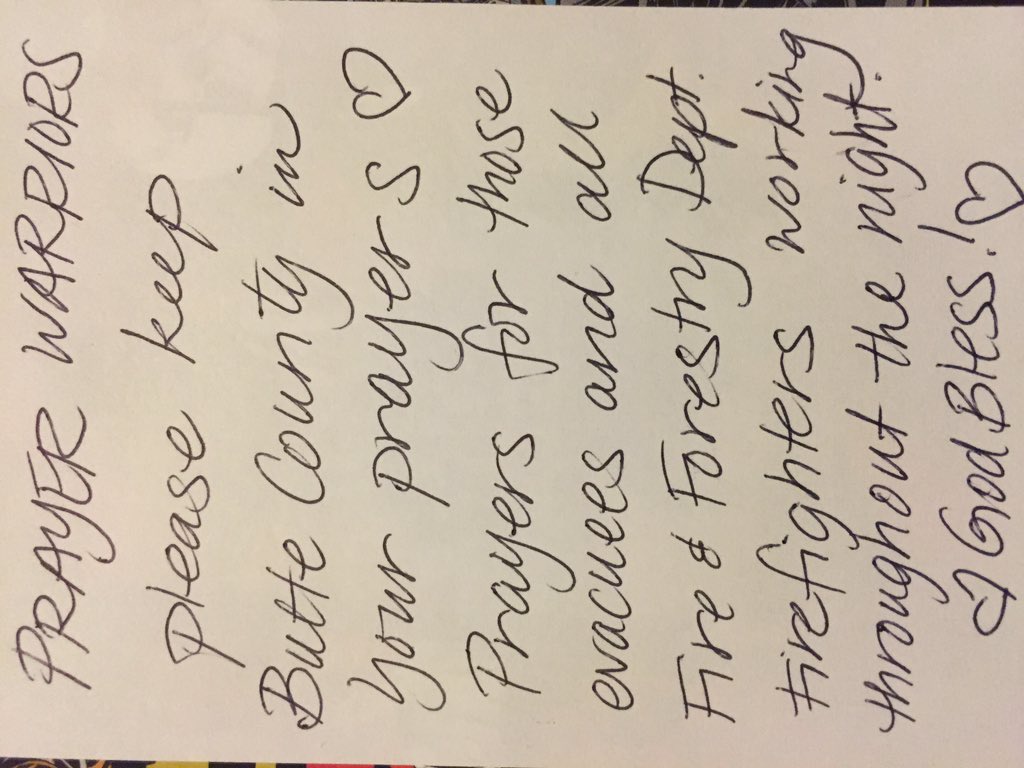 PRAYER WARRIORS
please keep
Butte County in
your prayers ♡
Prayers for those
evacuees and all
Fire & Forestry Dept.
Firefighters working
throughout the night.
♡ God Bless! ♡